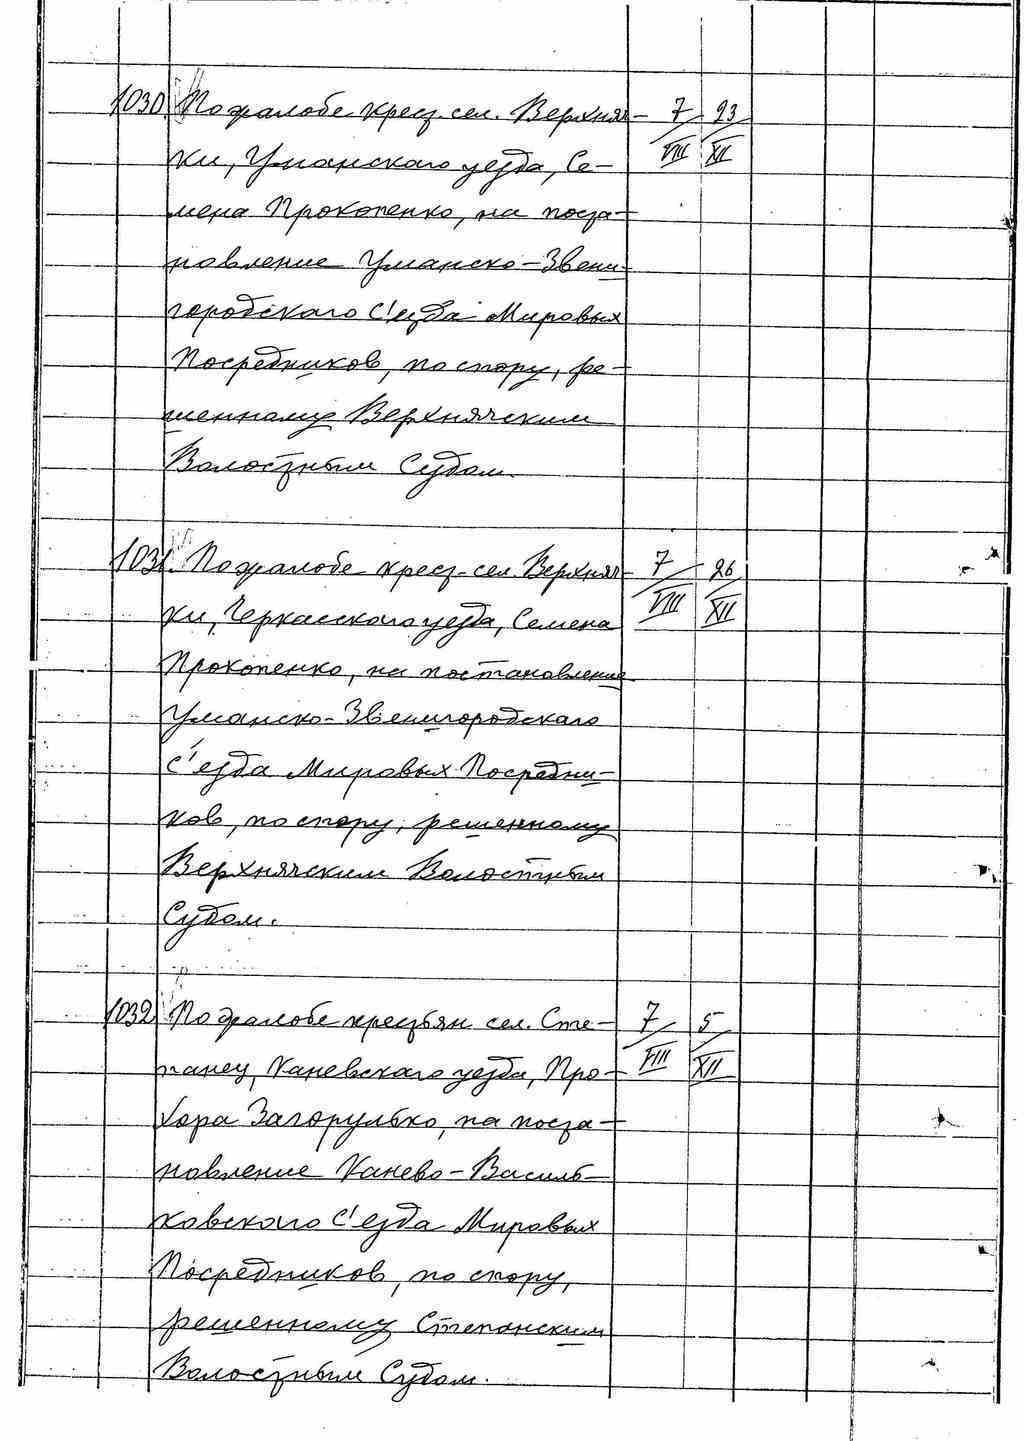 1030. По жалобе крест. сел. Верхняч- 7/VIII 23/XII
ки, Уманского уезда, Се-
мена Прокопенко, на поста-
новление Уманско-Звени-
городского С'езда Мировых
Посредников, по спору, ре-
шенному Верхнячским
Волостным Судом.
1031. По жалобе крест. сел. Верхняч- 7/VIII 26/XII
ки, Черкасского уезда, Семена
Прокопенко, на постановление
Уманско-Звенигородского
С'езда Мировых Посредни-
ков, по спору, решенному
Верхнячским Волостным
Судом.
1032 По жалобе крестьян сел. Сте- 7/VIII 5/XII
панец, Каневского уезда, Про-
хора Загорулько, на поста-
новление Канево-Василь-
ковского С'езда Мировых
Посредников, по спору,
решенному Степанским
Волостным Судом.